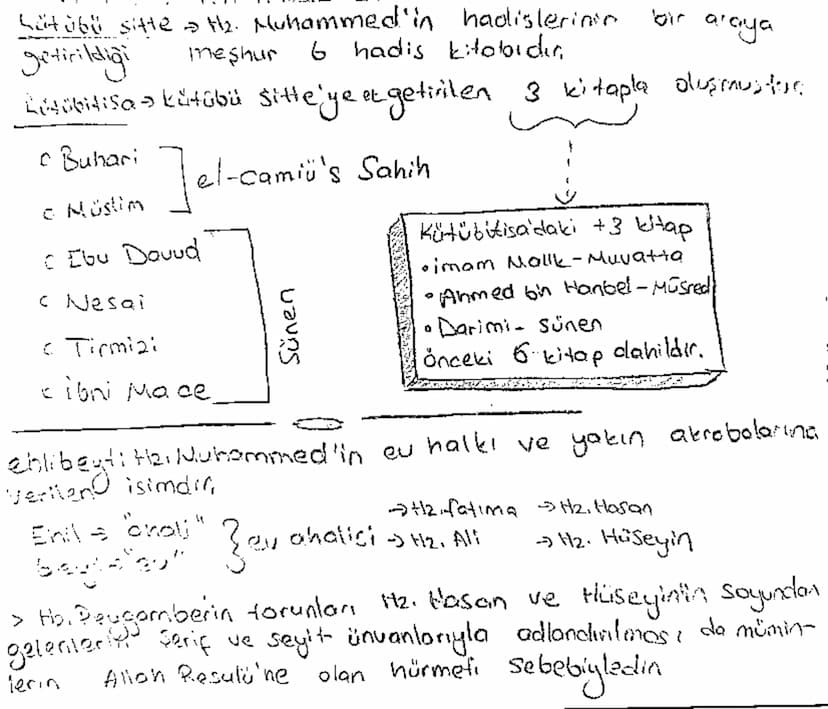 Kütübü sitte → Hz. Muhammed'in hadislerinin bir araya
getirildiği meşhur 6 hadis kitabıdır.
Kütübitisa → kütübü sitte'ye ek getirilen 3 kitapla oluşmuştur.
c Buhari
c Müslim
el-camiü's Sahih
c Ebu Davud
c Nesai
c Tirmizi
c İbni Mace
Sünen
Kütübitisa'daki +3 kitap
• imam Malik - Muvatta
• Ahmed bin Hanbel - Müsned
• Darimi - sünen
önceki 6 kitap dahildir.
ehlibeyt: Hz. Muhammed'in ev halkı ve yakın akrabalarına
verilen isimdir.
Ehil → "ahali"
beyt → "ev"
} ev ahalici
→ Hz. fatıma → Hz. Hasan
→ Hz. Ali → Hz. Hüseyin
> Hz. Peygamberin torunları Hz. Hasan ve Hüseyinin soyundan
gelenlerin şerif ve seyit ünvanlarıyla adlandırılması da mümin-
lerin Allah Resulü'ne olan hürmeti sebebiyledir.